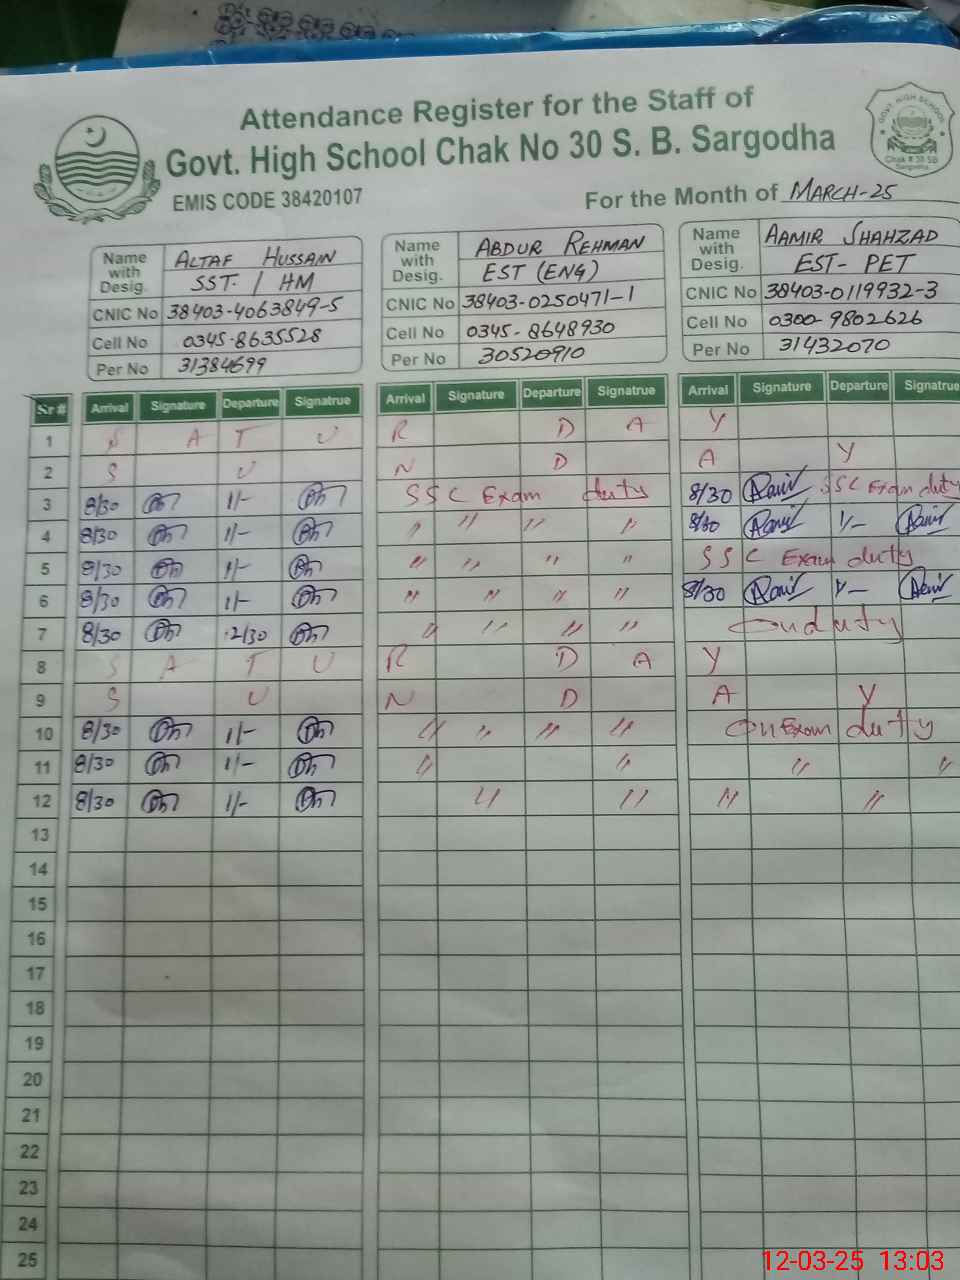 Attendance Register for the Staff of
Govt. High School Chak No 30 S. B. Sargodha
EMIS CODE 38420107
For the Month of MARCH-25
GOVT. HIGH SCHOOL
Chak # 30 SB
Sargodha
Name with Desig. ALTAF HUSSAIN SST. / HM
CNIC No 38403-4063849-5
Cell No 0345-8635528
Per No 31384699
Name with Desig. ABDUR REHMAN EST (ENG)
CNIC No 38403-0250471-1
Cell No 0345-8648930
Per No 30520910
Name with Desig. AAMIR SHAHZAD EST- PET
CNIC No 38403-0119932-3
Cell No 0300-9802626
Per No 31432070
Sr # Arrival Signature Departure Signatrue Arrival Signature Departure Signatrue Arrival Signature Departure Signatrue
1 S A T U R D A Y
2 S U N D A Y
3 8/30 1/- SSC Exam duty 8/30 Aamir SSC Exam duty
4 8/30 1/- " " " " 8/30 Aamir 1/- Aamir
5 8/30 1/- " " " " SSC Exam duty
6 8/30 1/- " " " " 8/30 Aamir 1/- Aamir
7 8/30 2/30 " " " " On duty
8 S A T U R D A Y
9 S U N D A Y
10 8/30 1/- " " " " On Exam duty
11 8/30 1/- " " " "
12 8/30 1/- " " " "
13
14
15
16
17
18
19
20
21
22
23
24
25
12-03-25 13:03